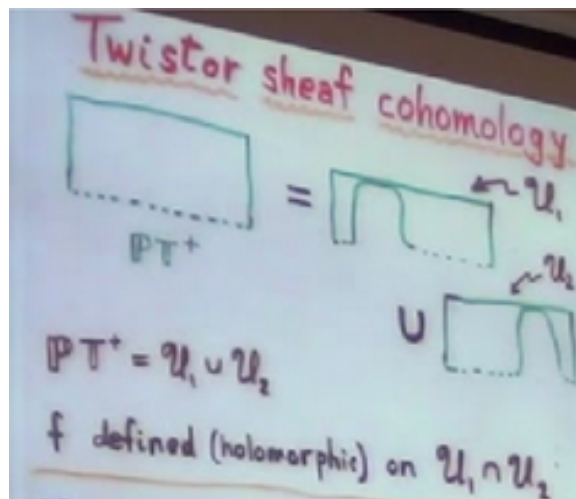 Twistor sheaf cohomology
=
𝒰₁
ℙ𝕋⁺
𝒰₂
∪
ℙ𝕋⁺ = 𝒰₁ ∪ 𝒰₂
f defined (holomorphic) on 𝒰₁ ∩ 𝒰₂